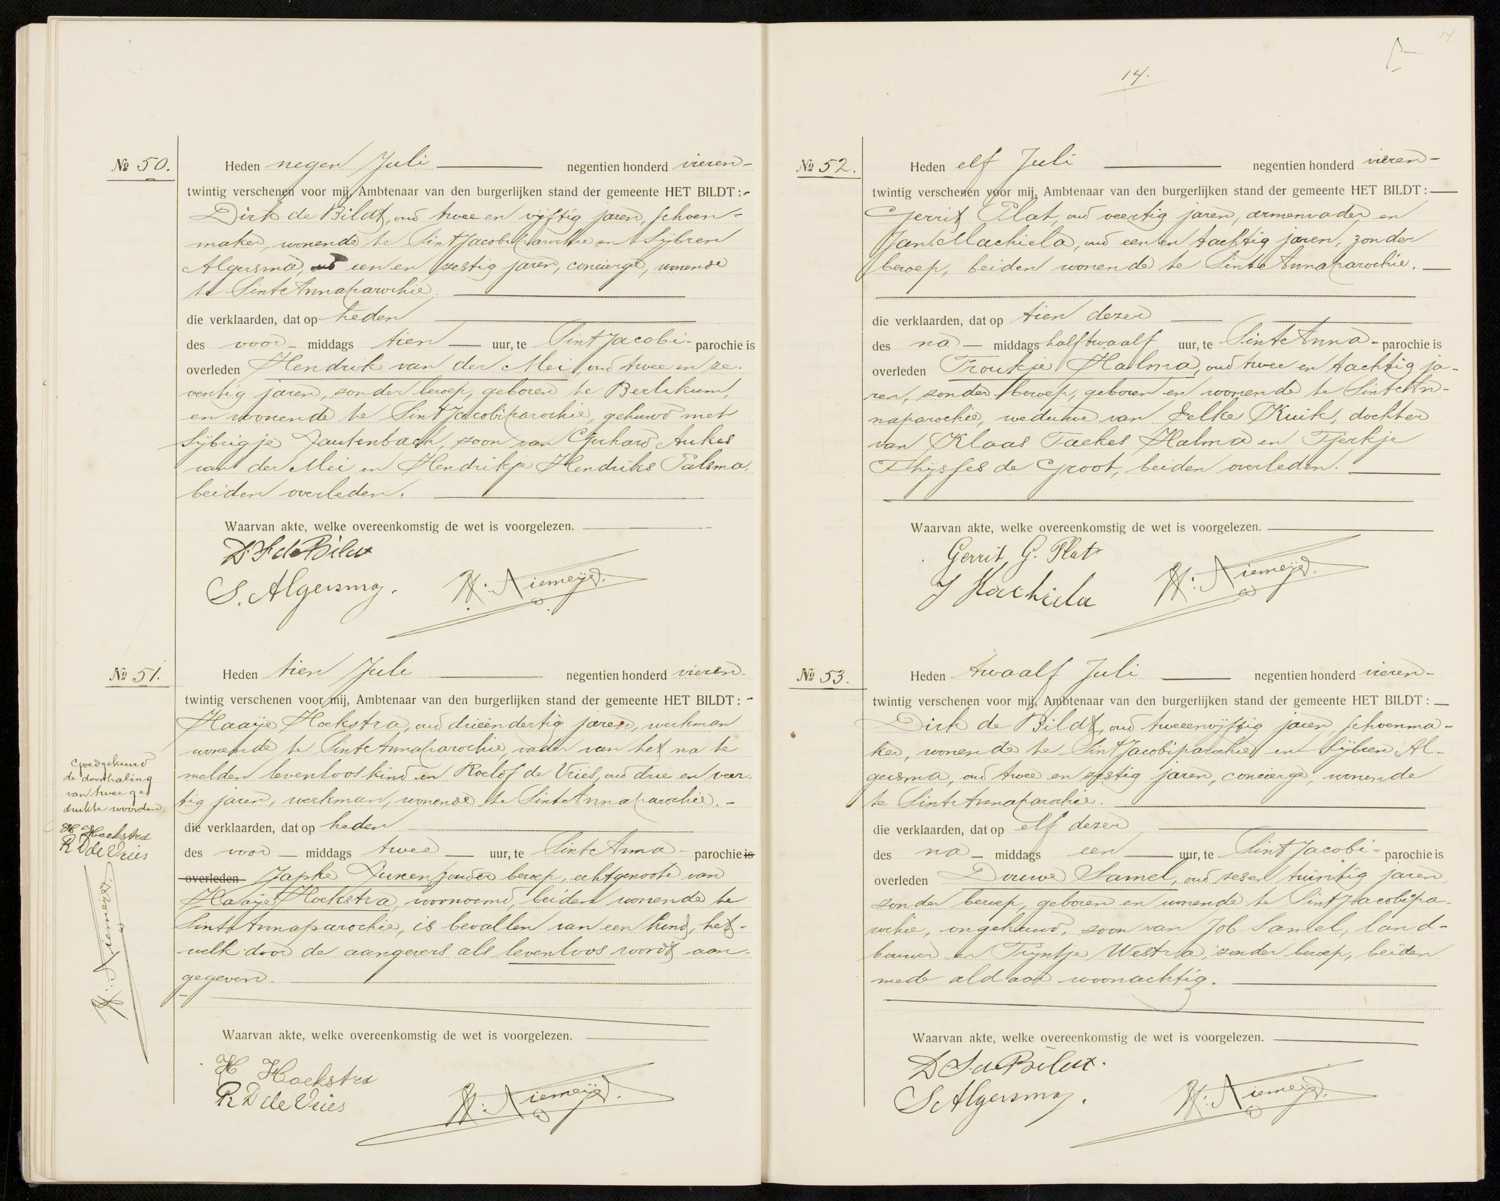 № 50.
Heden negen Juli negentien honderd vieren-
twintig verschenen voor mij, Ambtenaar van den burgerlijken stand der gemeente HET BILDT:
Dirk de Bildt, oud twee en vijftig jaren, schoen-
maker, wonende te Sint Jacobiparochie en Sijbren
Algersma, oud een en zestig jaren, concierge, wonende
te Sinte Annaparochie.
die verklaarden, dat op heden
des voor- middags tien uur, te Sint Jacobi- parochie is
overleden Hendrik van der Mei, oud twee en ze-
ventig jaren, zonder beroep, geboren te Berlikum,
en wonende te Sint Jacobiparochie, gehuwd met
Sijbrigje Zautenbach, zoon van Gerhard Aukes
van der Mei en Hendrikje Hendriks Palsma,
beiden overleden.
Waarvan akte, welke overeenkomstig de wet is voorgelezen.
D. de Bildt
S. Algersma.
H. Niemeijer.
№ 51.
Heden tien Juli negentien honderd vieren-
twintig verschenen voor mij, Ambtenaar van den burgerlijken stand der gemeente HET BILDT:
Haaije Hoekstra, oud drieëndertig jaren, werkman
wonende te Sinte Annaparochie, vader van het na te
melden levenloos kind en Roelof de Vries, oud drie en veer-
tig jaren, werkman, wonende te Sinte Annaparochie.
Goedgekeurd
de doorhaling
van twee ge-
drukte woorden
H. Hoekstra
R D de Vries
H. Niemeijer.
die verklaarden, dat op heden
des voor- middags twee uur, te Sinte Anna- parochie is
overleden Japke zonder beroep, echtgenoote van
Haaije Hoekstra, voornoemd, beiden wonende te
Sinte Annaparochie, is bevallen van een kind, het-
welk door de aangevers als levenloos wordt aan-
gegeven.
Waarvan akte, welke overeenkomstig de wet is voorgelezen.
H Hoekstra
R D de Vries
H. Niemeijer.
14.
№ 52.
Heden elf Juli negentien honderd vieren-
twintig verschenen voor mij, Ambtenaar van den burgerlijken stand der gemeente HET BILDT:
Gerrit Plat, oud veertig jaren, armenvader en
Jan Machiela, oud een en tachtig jaren, zonder
beroep, beiden wonende te Sinte Annaparochie.
die verklaarden, dat op tien dezer
des na- middags half twaalf uur, te Sinte Anna- parochie is
overleden Troukje Halma, oud twee en tachtig ja-
ren, zonder beroep, geboren en wonende te Sinte An-
naparochie, weduwe van Jelke Kuik, dochter
van Klaas Taekes Halma en Tjerkje
Thijsses de Groot, beiden overleden.
Waarvan akte, welke overeenkomstig de wet is voorgelezen.
Gerrit G. Plat
J Machiela
H. Niemeijer.
№ 53.
Heden twaalf Juli negentien honderd vieren-
twintig verschenen voor mij, Ambtenaar van den burgerlijken stand der gemeente HET BILDT:
Dirk de Bildt, oud tweeenvijftig jaren, schoenma-
ker, wonende te Sint Jacobiparochie en Sijbren Al-
gersma, oud twee en zestig jaren, concierge, wonende
te Sinte Annaparochie.
die verklaarden, dat op elf dezer
des na- middags een uur, te Sint Jacobi- parochie is
overleden Douwe Samel, oud zesen twintig jaren
zonder beroep, geboren en wonende te Sint Jacobipa-
rochie, ongehuwd, zoon van Job Samel, land-
bouwer en Trijntje Westra, zonder beroep, beiden
mede aldaar woonachtig.
Waarvan akte, welke overeenkomstig de wet is voorgelezen.
D de Bildt.
S Algersma.
H. Niemeijer.